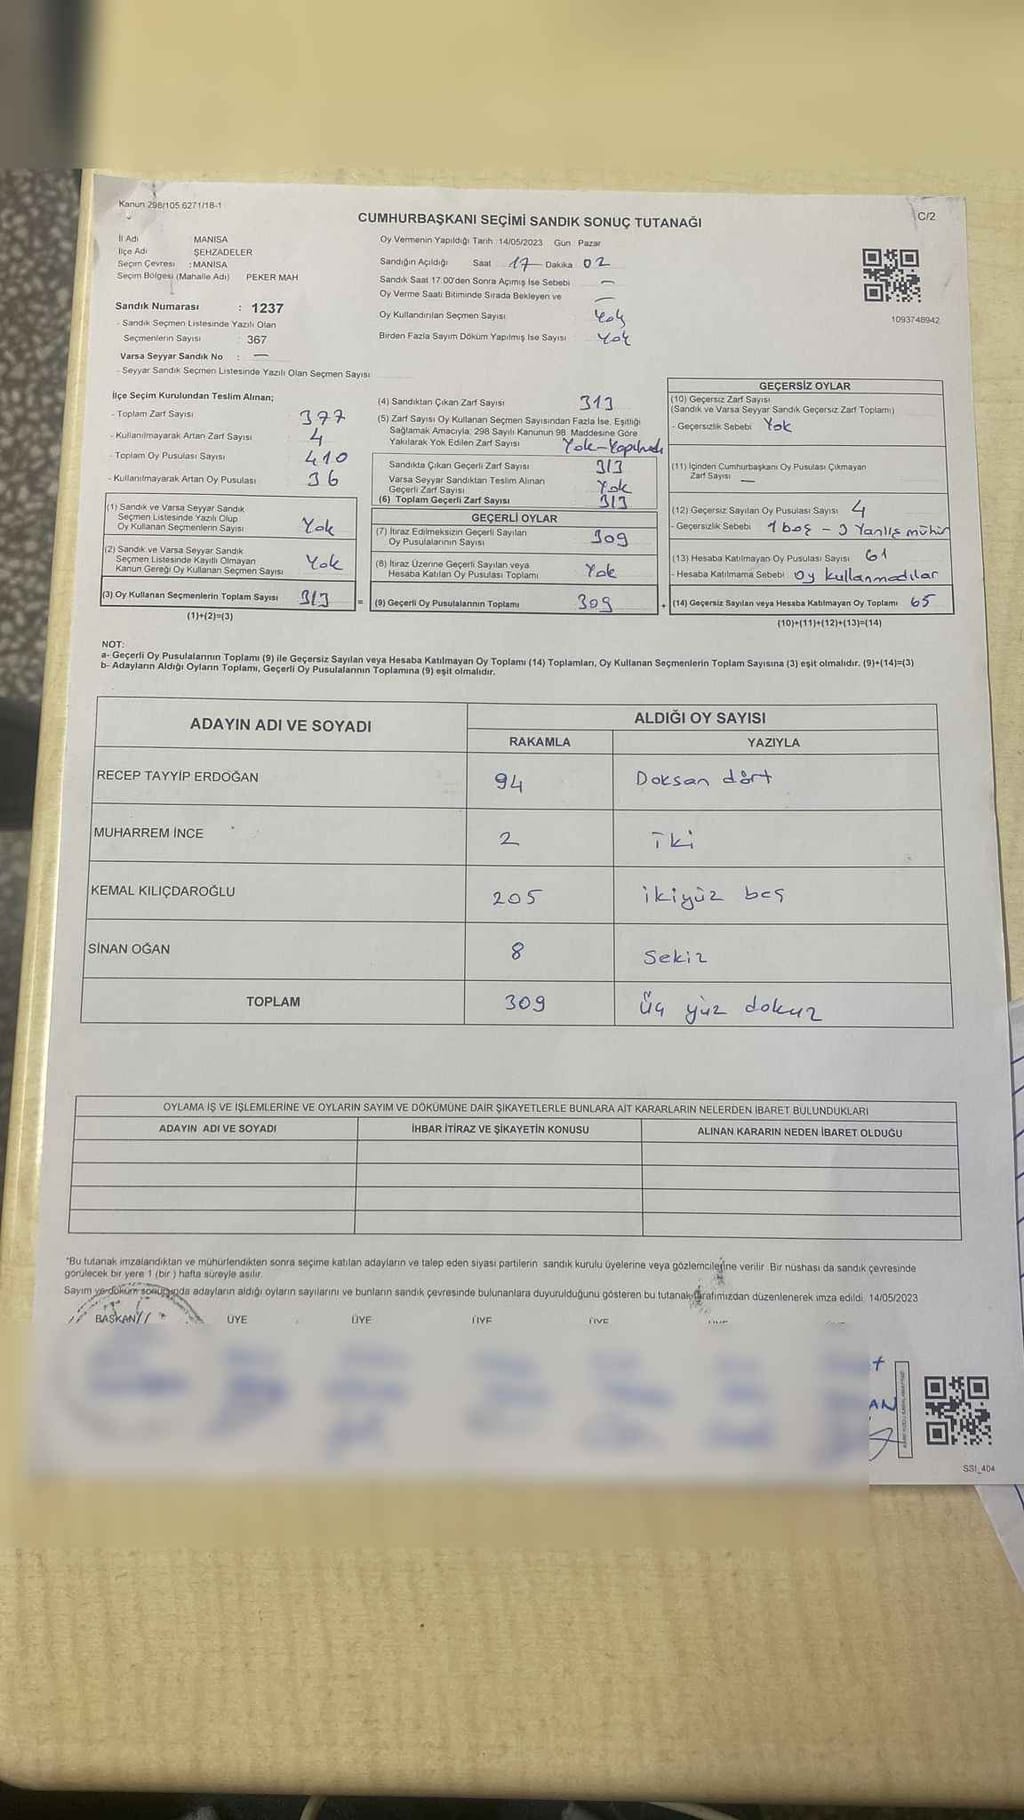 Kanun 298/105 6271/18-1
CUMHURBAŞKANI SEÇİMİ SANDIK SONUÇ TUTANAĞI
C/2
İl Adı MANİSA
İlçe Adı ŞEHZADELER
Seçim Çevresi :MANİSA
Seçim Bölgesi (Mahalle Adı) PEKER MAH
Sandık Numarası : 1237
- Sandık Seçmen Listesinde Yazılı Olan
Seçmenlerin Sayısı 367
Varsa Seyyar Sandık No : —
- Seyyar Sandık Seçmen Listesinde Yazılı Olan Seçmen Sayısı
Oy Vermenin Yapıldığı Tarih :14/05/2023 Gün : Pazar
Sandığın Açıldığı Saat 17 Dakika 02
Sandık Saat 17:00'den Sonra Açılmış İse Sebebi —
Oy Verme Saati Bitiminde Sırada Bekleyen ve —
Oy Kullandırılan Seçmen Sayısı Yok
Birden Fazla Sayım Döküm Yapılmış İse Sayısı Yok
1093748942
İlçe Seçim Kurulundan Teslim Alınan;
- Toplam Zarf Sayısı 377
- Kullanılmayarak Artan Zarf Sayısı 4
- Toplam Oy Pusulası Sayısı 410
- Kullanılmayarak Artan Oy Pusulası 36
(1) Sandık ve Varsa Seyyar Sandık
Seçmen Listesinde Yazılı Olup
Oy Kullanan Seçmenlerin Sayısı Yok
(2) Sandık ve Varsa Seyyar Sandık
Seçmen Listesinde Kayıtlı Olmayan
Kanun Gereği Oy Kullanan Seçmen Sayısı Yok
(3) Oy Kullanan Seçmenlerin Toplam Sayısı 313 =
(1)+(2)=(3)
(4) Sandıktan Çıkan Zarf Sayısı 313
(5) Zarf Sayısı Oy Kullanan Seçmen Sayısından Fazla İse, Eşitliği
Sağlamak Amacıyla, 298 Sayılı Kanunun 98. Maddesine Göre
Yakılarak Yok Edilen Zarf Sayısı Yok-Yapılmadı
Sandıkta Çıkan Geçerli Zarf Sayısı 313
Varsa Seyyar Sandıktan Teslim Alınan
Geçerli Zarf Sayısı Yok
(6) Toplam Geçerli Zarf Sayısı 313
GEÇERLİ OYLAR
(7) İtiraz Edilmeksizin Geçerli Sayılan
Oy Pusulalarının Sayısı 309
(8) İtiraz Üzerine Geçerli Sayılan veya
Hesaba Katılan Oy Pusulası Toplamı Yok
(9) Geçerli Oy Pusulalarının Toplamı 309 +
GEÇERSİZ OYLAR
(10) Geçersiz Zarf Sayısı
(Sandık ve Varsa Seyyar Sandık Geçersiz Zarf Toplamı)
- Geçersizlik Sebebi Yok
(11) İçinden Cumhurbaşkanı Oy Pusulası Çıkmayan
Zarf Sayısı —
(12) Geçersiz Sayılan Oy Pusulası Sayısı 4
- Geçersizlik Sebebi 1 boş - 3 Yanlış mühür
(13) Hesaba Katılmayan Oy Pusulası Sayısı 61
- Hesaba Katılmama Sebebi Oy kullanmadılar
(14) Geçersiz Sayılan veya Hesaba Katılmayan Oy Toplamı 65
(10)+(11)+(12)+(13)=(14)
NOT:
a- Geçerli Oy Pusulalarının Toplamı (9) ile Geçersiz Sayılan veya Hesaba Katılmayan Oy Toplamı (14) Toplamları, Oy Kullanan Seçmenlerin Toplam Sayısına (3) eşit olmalıdır. (9)+(14)=(3)
b- Adayların Aldığı Oyların Toplamı, Geçerli Oy Pusulalarının Toplamına (9) eşit olmalıdır.
ADAYIN ADI VE SOYADI ALDIĞI OY SAYISI
RAKAMLA YAZIYLA
RECEP TAYYİP ERDOĞAN 94 Doksan dört
MUHARREM İNCE 2 İki
KEMAL KILIÇDAROĞLU 205 ikiyüz beş
SİNAN OĞAN 8 Sekiz
TOPLAM 309 Üç yüz dokuz
OYLAMA İŞ VE İŞLEMLERİNE VE OYLARIN SAYIM VE DÖKÜMÜNE DAİR ŞİKAYETLERLE BUNLARA AİT KARARLARIN NELERDEN İBARET BULUNDUKLARI
ADAYIN ADI VE SOYADI İHBAR İTİRAZ VE ŞİKAYETİN KONUSU ALINAN KARARIN NEDEN İBARET OLDUĞU
*Bu tutanak imzalandıktan ve mühürlendikten sonra seçime katılan adayların ve talep eden siyasi partilerin sandık kurulu üyelerine veya gözlemcilerine verilir. Bir nüshası da sandık çevresinde
görülecek bir yere 1 (bir ) hafta süreyle asılır.
Sayım ve döküm sonucunda adayların aldığı oyların sayılarını ve bunların sandık çevresinde bulunanlara duyurulduğunu gösteren bu tutanak tarafımızdan düzenlenerek imza edildi. 14/05/2023
BAŞKAN ÜYE ÜYE ÜYE ÜYE
AN
SSI_404